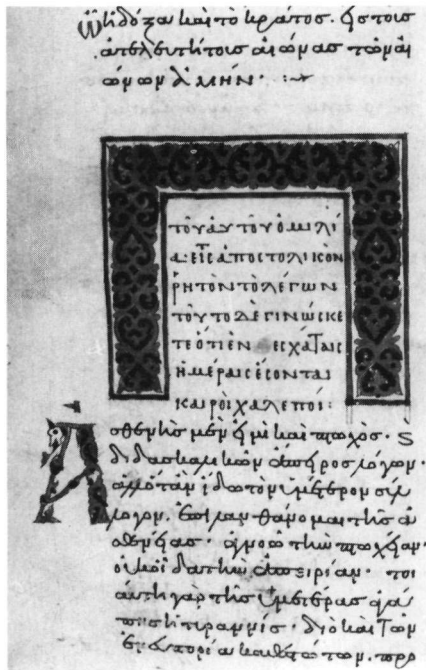 ᾧ ἡ δόξα καὶ τὸ κράτος. εἰς τοὺς
ἀτελευτήτους αἰῶνας τῶν αἰ
ώνων ἀμήν :
τοῦ αὐτοῦ ὁμιλί
α εἰς ἀποστολικὸν
ῥητὸν τὸ λέγων
τοῦτο δὲ γινώσκε
τε ὅτι ἐν ἐσχάταις
ἡμέραις ἔσονται
καιροὶ χαλεποί :
Ἀσθενὴς μὲν εἰμὶ καὶ πτωχὸς. καὶ
διδασκαλικῶν ἄπειρος λόγων.
ἀλλ' ὅταν ἴδω τὸν ὑμέτερον σύλ
λογον. ἐπιλανθάνομαι τῆς ἀ
σθενείας. ἀγνοῶ τὴν πτωχείαν.
οὐκ οἶδα τὴν ἀπειρίαν. τοι
αύτη γὰρ τῆς ὑμετέρας ἀγά
πης ἡ τυραννίς. διὸ καὶ τῶν
ἐν εὐπορία καθεστώτων. προ